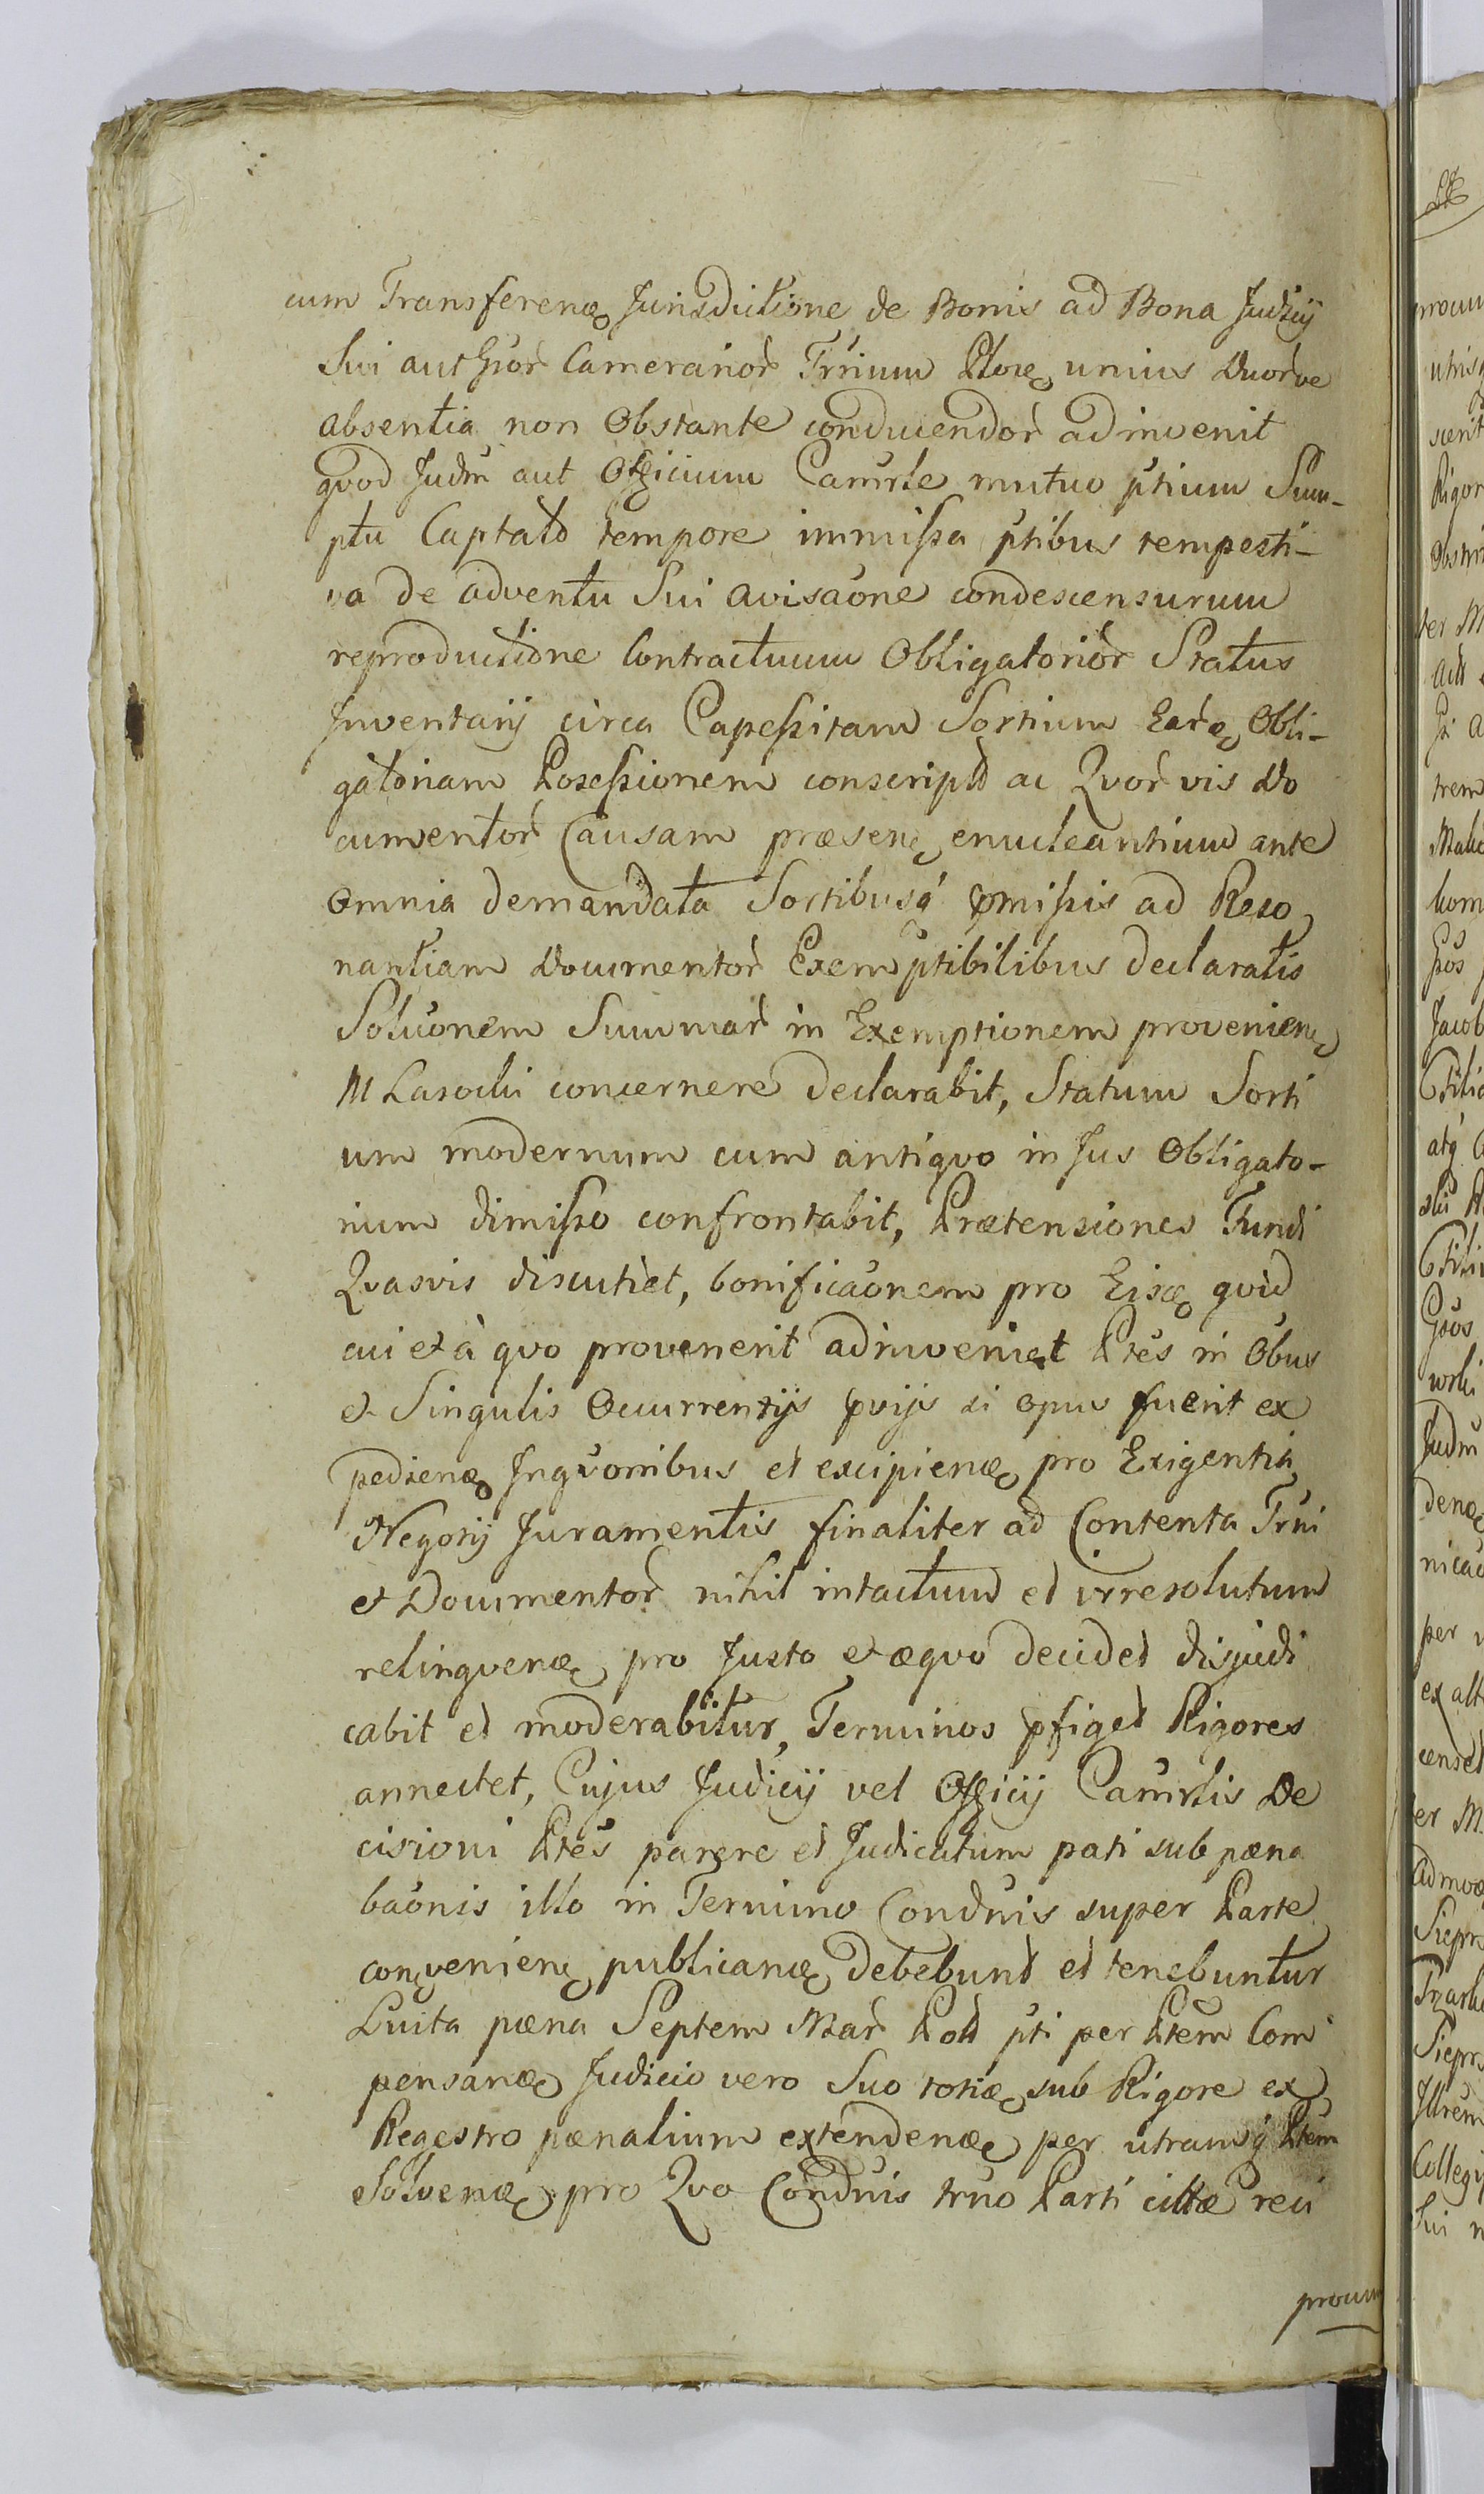 cum Transferenæ Jurisdictione de Bonis ad Bona Judicij
Sui authör Camerarior Trrium Ptoræ unius Duorve
absentia non Obstante conducendor adinvenit
qvod Judm aut Officium Camrle mutuo ptium Sum-
ptu Captato tempore immissa ptibus tempesti-
va de adventu Sui avisaone condescensurum
reproductione Contractuum Obligatorior Status
Inventarij circa Capessitam Sortium Earæ Obli-
gatoriam Posessionem conscripti ac Qvorvis Do
cumentor Causam præsenę enucleantium ante
Omnia demandata Sortibusq́ pmissis ad Reso
nantiam Documentor Exemptibilibus declaratis
Soluonem Summar in Exemptionem provenienę
M Lasocki concernere declarabit, Statum Sorti
um modernum cum antiqvo in Jus Obligato-
rium dimisso confrontabit, Prætensiones Fundi
Qvasvis discutiet, bonificaonem pro Eisæ qvid
cui et à qvo provenerit adinveniet Ptes in Obus
et Singulis Occurrentijs pvijs si opus fuerit ex
pedienæ Inqvonibus et excipienæ pro Exigentia
Negotij Juramentis finaliter ad Contenta Trni
et Documentor nihil intactum et irresolutum
relinqvenæ pro Justo et æqvo decidet disjudi
cabit et moderabitur, Terminos pfiget Rigores
annectet, Cujus Judicij vel Officij Camrlis De
cisioni Ptes parere et Judicatum pati sub pæna
baonis illo in Termino Condnis super Parte
convenienę publicanæ debebunt et tenebuntur
Luita pæna Septem Mar Poll pti per Ptem Com
pensanæ Judicio vero Suo totiæ sub Rigore ex
Regestro pænalium extendenæ per utramq́ Ptem
Solvenæ, pro Qvo Condnis trno Parti cittæ reci
procum